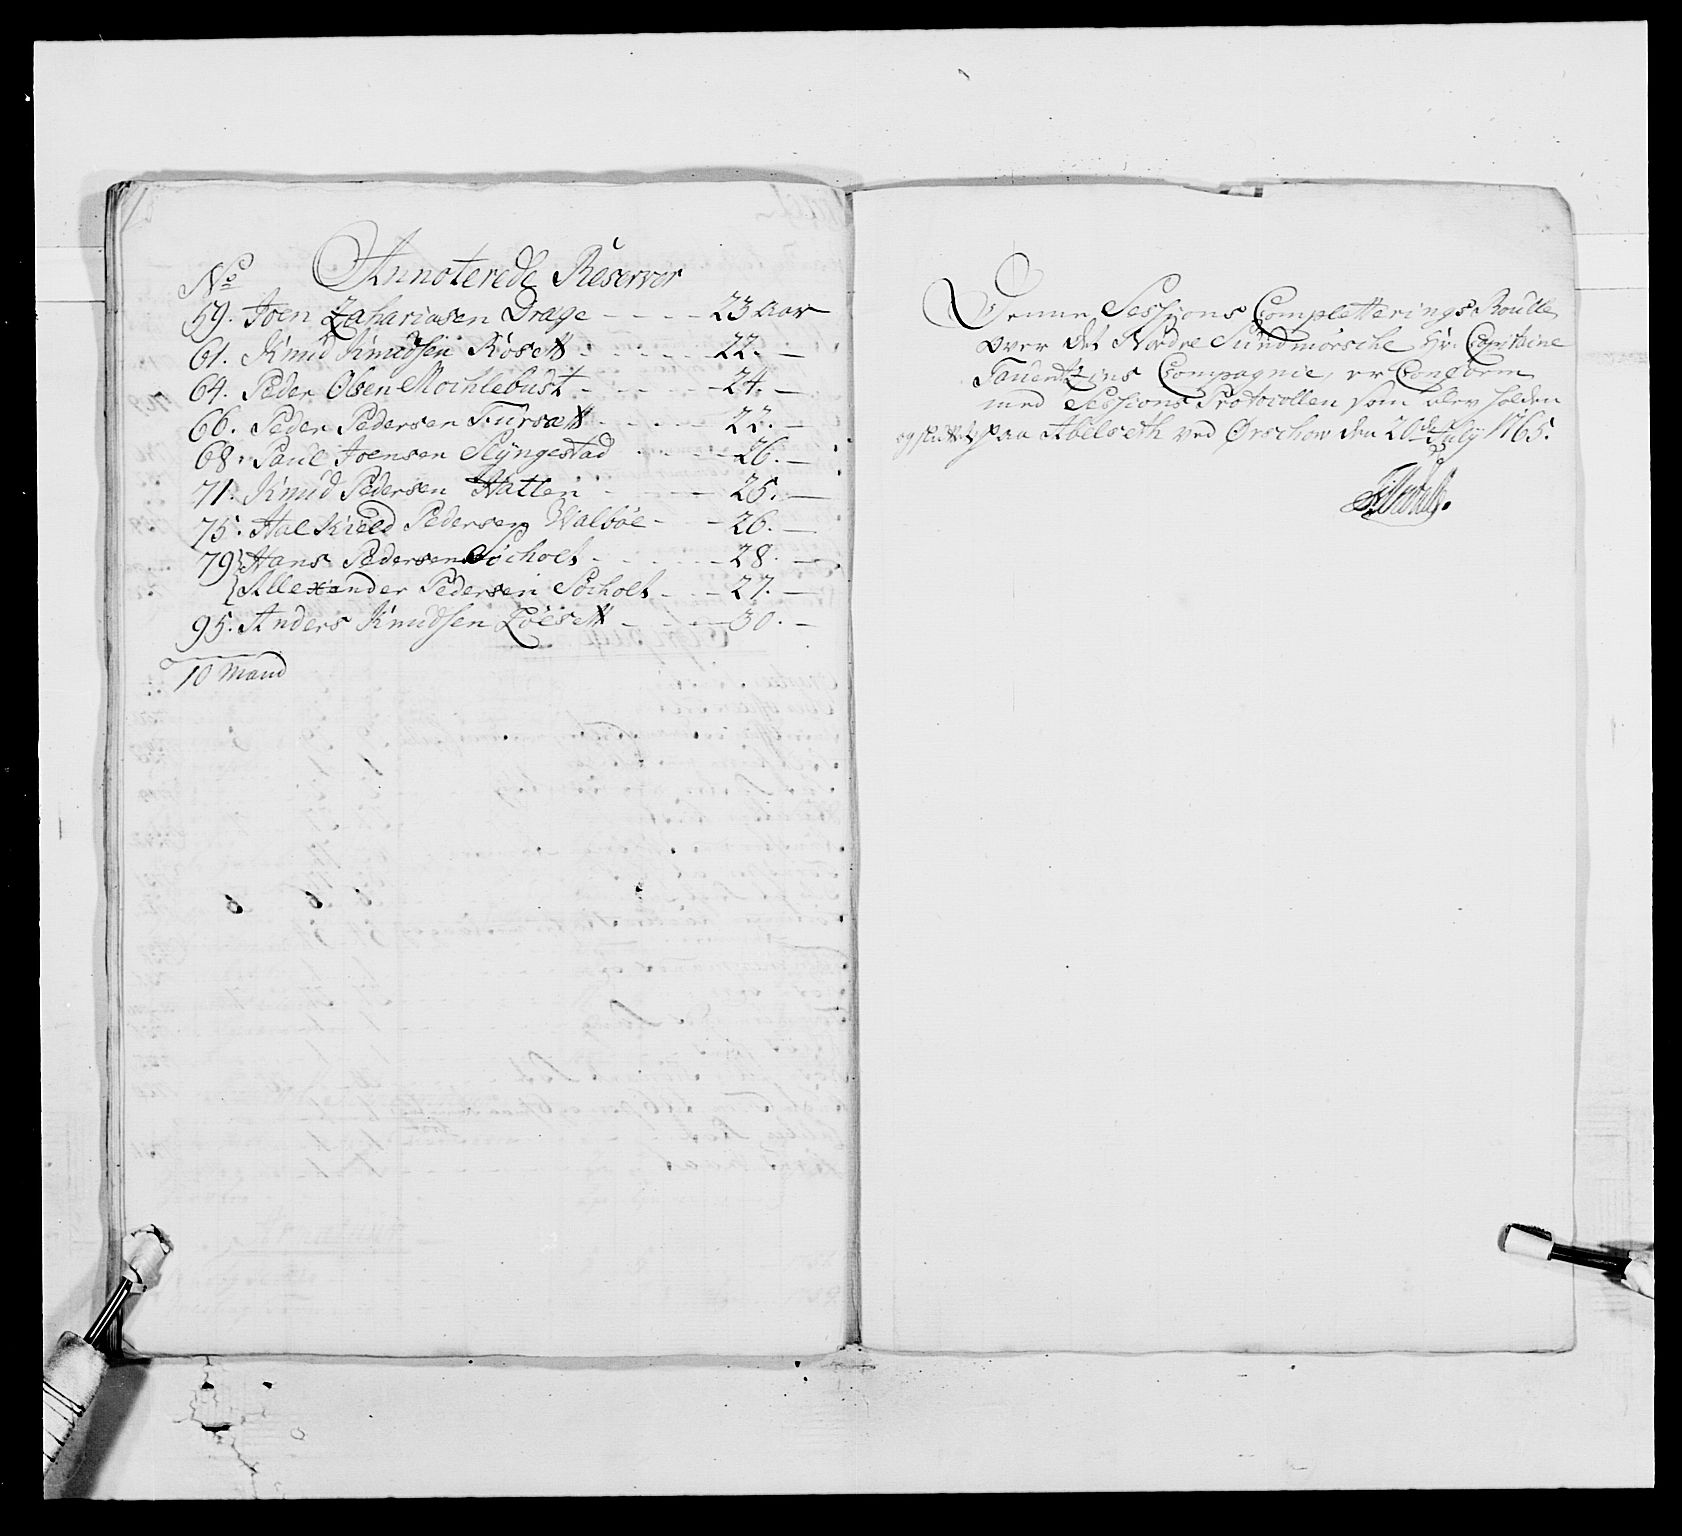 No Annoterede Reserver
59. Joen Zachariasen Drage - - - - 23 aar
61. Knud Knudsen Røsett - - - - - 22. -
64. Peder Olsen Mochlebust - - - - - 24. -
66. Peder Pedersen Fursett - - - - - 22. -
68. Paul Joensen Slyngestad - - - - 26. -
71. Knud Pedersen Hatlen - - - - - 25. -
75. Hal Kield Pedersen Walbøe - - - 26. -
79 Hans Pedersen Søcholt - - - - - 28. -
Allexander Pedersen Søcholt - - - 27. -
95. Anders Knudsen Løesett - - - - 30. -
10 Mand
Denne Sessions Completterings Roulle
over det Nordre Sundmørsche Hr. Capitaine
Compagnie, er Conform
med Sessions Protocollen som blev holden
og sluttet paa Abelseth ved Ørschow den 20de July 1765.